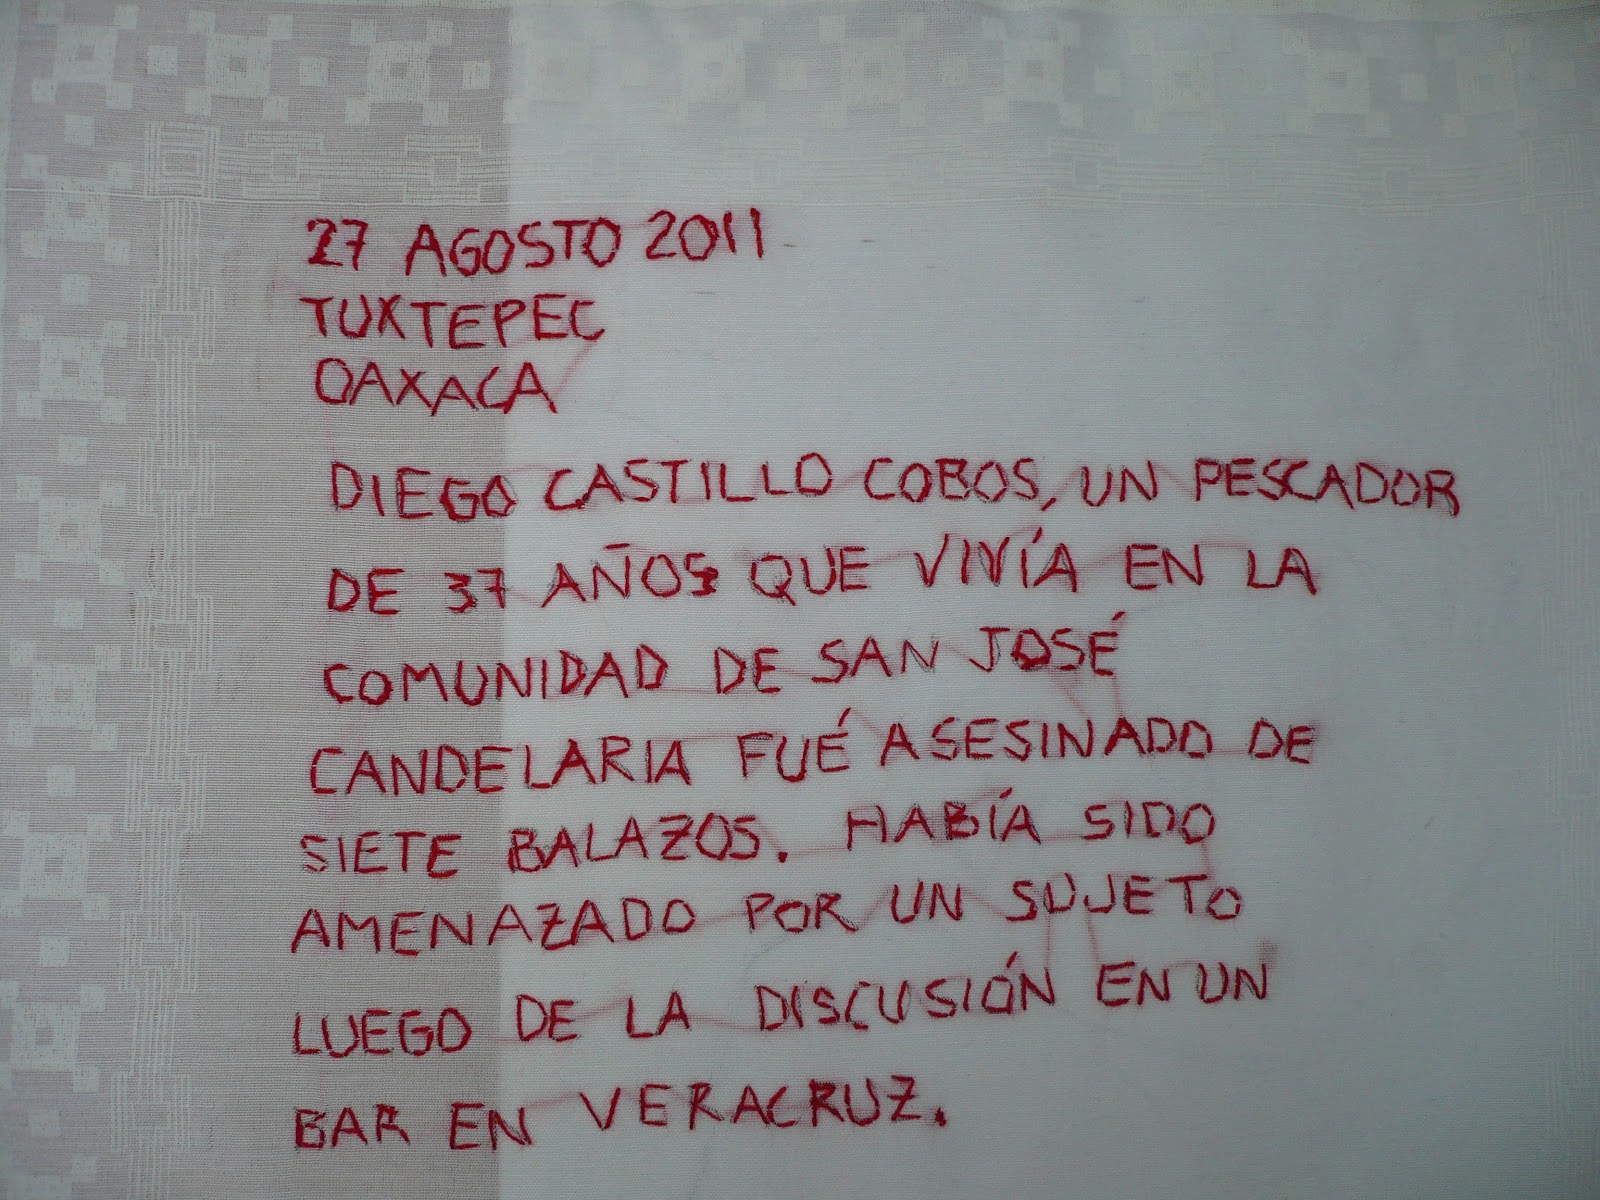 27 AGOSTO 2011
TUXTEPEC
OAXACA
DIEGO CASTILLO COBOS, UN PESCADOR
DE 37 AÑOS QUE VIVÍA EN LA
COMUNIDAD DE SAN JOSÉ
CANDELARIA FUÉ ASESINADO DE
SIETE BALAZOS. HABÍA SIDO
AMENAZADO POR UN SUJETO
LUEGO DE LA DISCUSIÓN EN UN
BAR EN VERACRUZ.